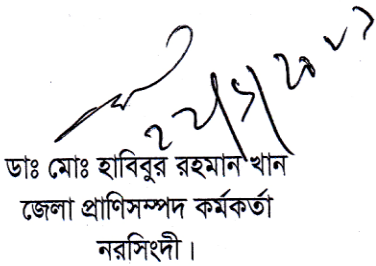 ডাঃ মোঃ হাবিবুর রহমান খান
জেলা প্রাণিসম্পদ কর্মকর্তা
নরসিংদী।